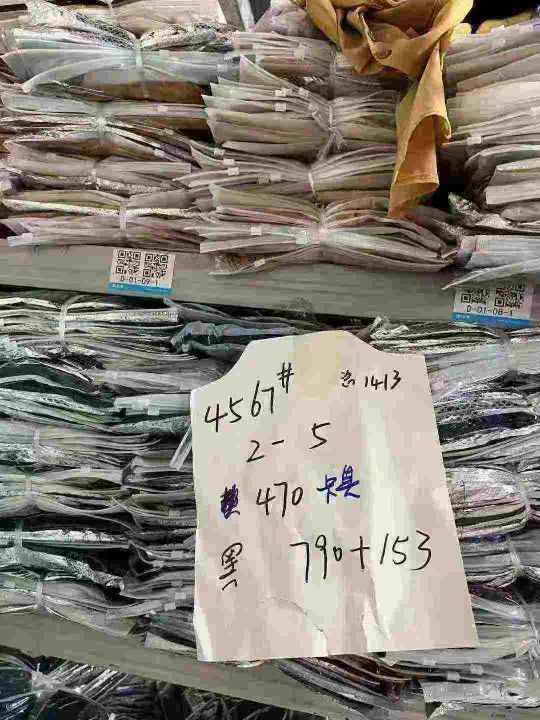 D-01-09-1
D-01-08-1
4567# 共1413
2-5
470 卡其
黑 790+153